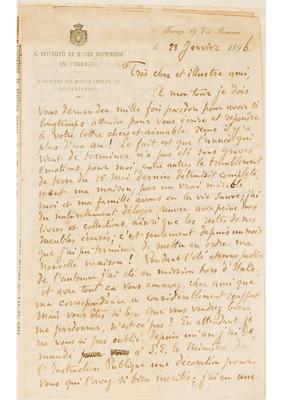 R. ISTITUTO DI STUDI SUPERIORI
IN FIRENZE
Firenze, 19 Via Romana
le 23 Janvier 1896.
Très cher et illustre ami,
A mon tour je dois
Vous demander mille fois pardon pour avoir si
longtemps attendu pour vous écrire et répondre
à votre lettre chère et aimable, reçue il y a
plus d'un an! Le fait est que l'année qui
vient de terminer n'a pas été sans graves
émotions pour moi, entre autres le tremblement
de terre du 18 Mai dernier détruisit complète-
ment ma maison; par un vrai miracle
moi et ma famille avons eu la vie sauve; j'ai
du naturellement déloger, sauver avec peine mes
livres et collections, ainsi que les restes de mes
meubles écrasés; c'est seulement depuis un mois
que j'ai pu terminer de mettre en ordre ma
nouvelle maison! Pendant l'été et une partie
de l'automne j'ai été en mission hors d'Italie,
et avec tout ça vous concevez, cher ami que
ma correspondance a considerablement souffert.
Mais vous êtes si bon que vous voudrez bien
me pardonner, n'est ce pas? En attendant je
ne vous ai pas oublié; depuis un an j'ai de-
mandé à S.E. le Ministre de
l'Instruction Publique une décoration pour
vous qui l'avez si bien meritée; j'ai eu une